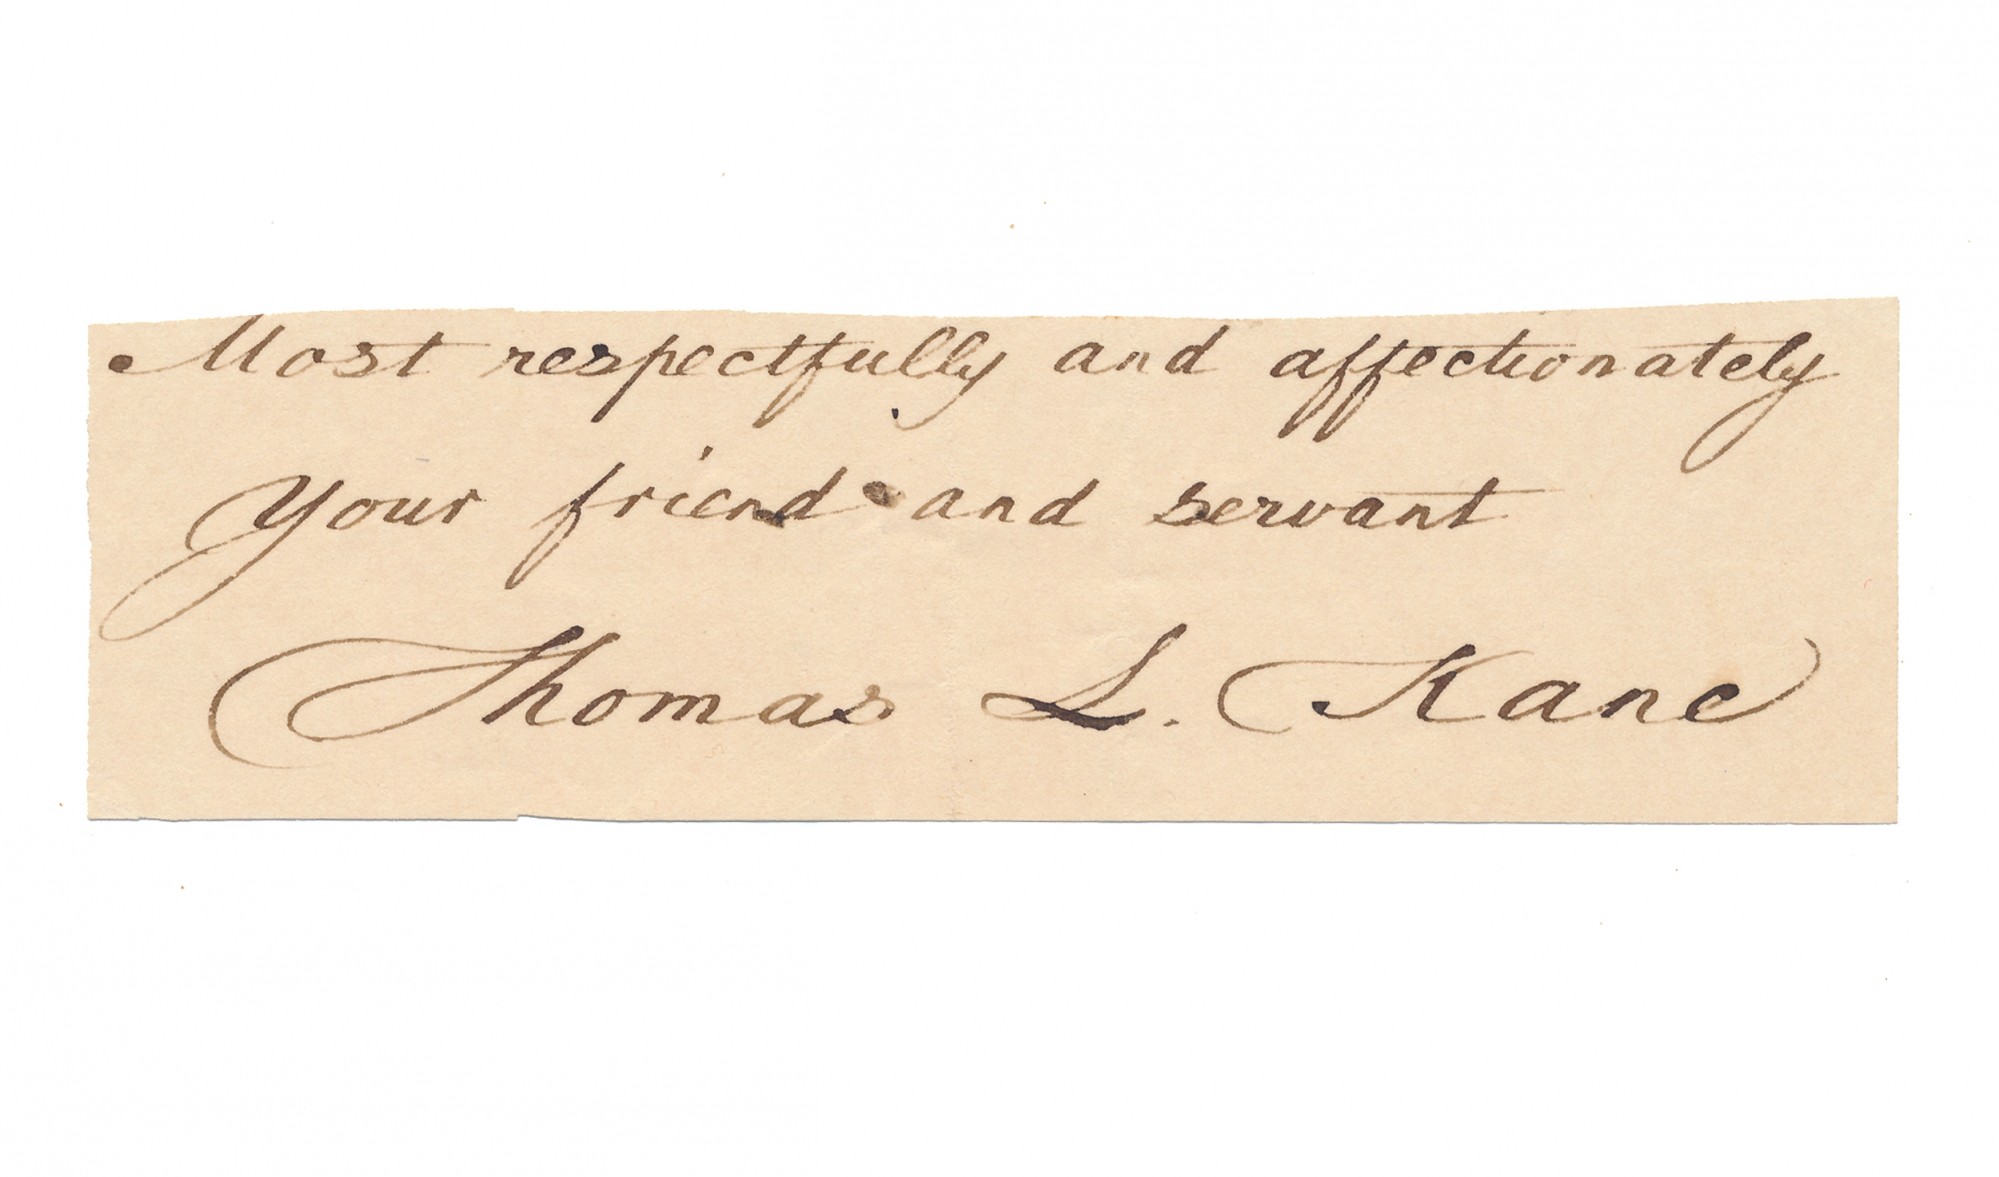 Most respectfully and affectionately
Your friend and servant
Thomas L. Kane